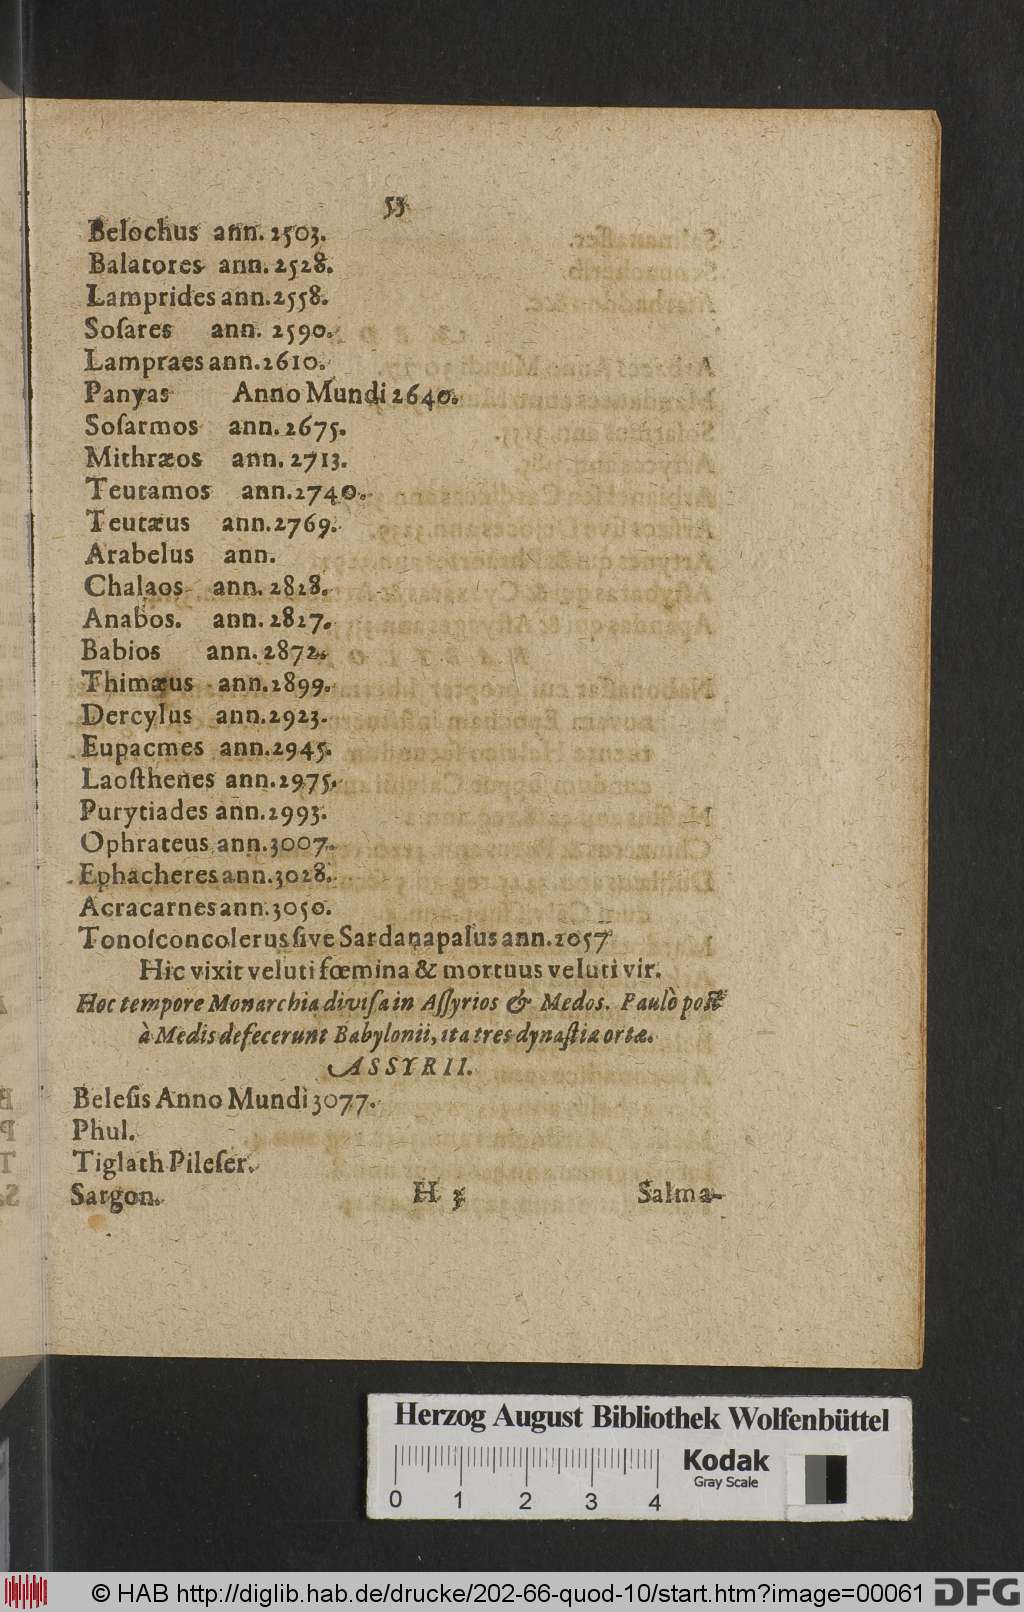 53
Belochus ann. 2503.
Balatores ann. 2528.
Lamprides ann. 2558.
Soſares ann. 2590.
Lampraes ann. 2610.
Panyas Anno Mundi 2640.
Soſarmos ann. 2675.
Mithræos ann. 2713.
Teutamos ann. 2740.
Teutæus ann. 2769.
Arabelus ann.
Chalaos ann. 2828.
Anabos. ann. 2827.
Babios ann. 2872.
Thimæus ann. 2899.
Dercylus ann. 2923.
Eupacmes ann. 2945.
Laoſthenes ann. 2975.
Purytiades ann. 2993.
Ophrateus ann. 3007.
Ephacheres ann. 3028.
Acracarnes ann. 3050.
Tonoſconcolerus ſive Sardanapalus ann. 2057
Hic vixit veluti fœmina & mortuus veluti vir.
Hoc tempore Monarchia diviſa in Aſſyrios & Medos. Paulò poſt
à Medis defecerunt Babylonii, ita tres dynaſtiæ ortæ.
ASSYRII.
Beleſis Anno Mundi 3077.
Phul.
Tiglath Pileſer.
Sargon. H 3 Salma-
Herzog August Bibliothek Wolfenbüttel
Kodak
Gray Scale
0 1 2 3 4
© HAB http://diglib.hab.de/drucke/202-66-quod-10/start.htm?image=00061
DFG